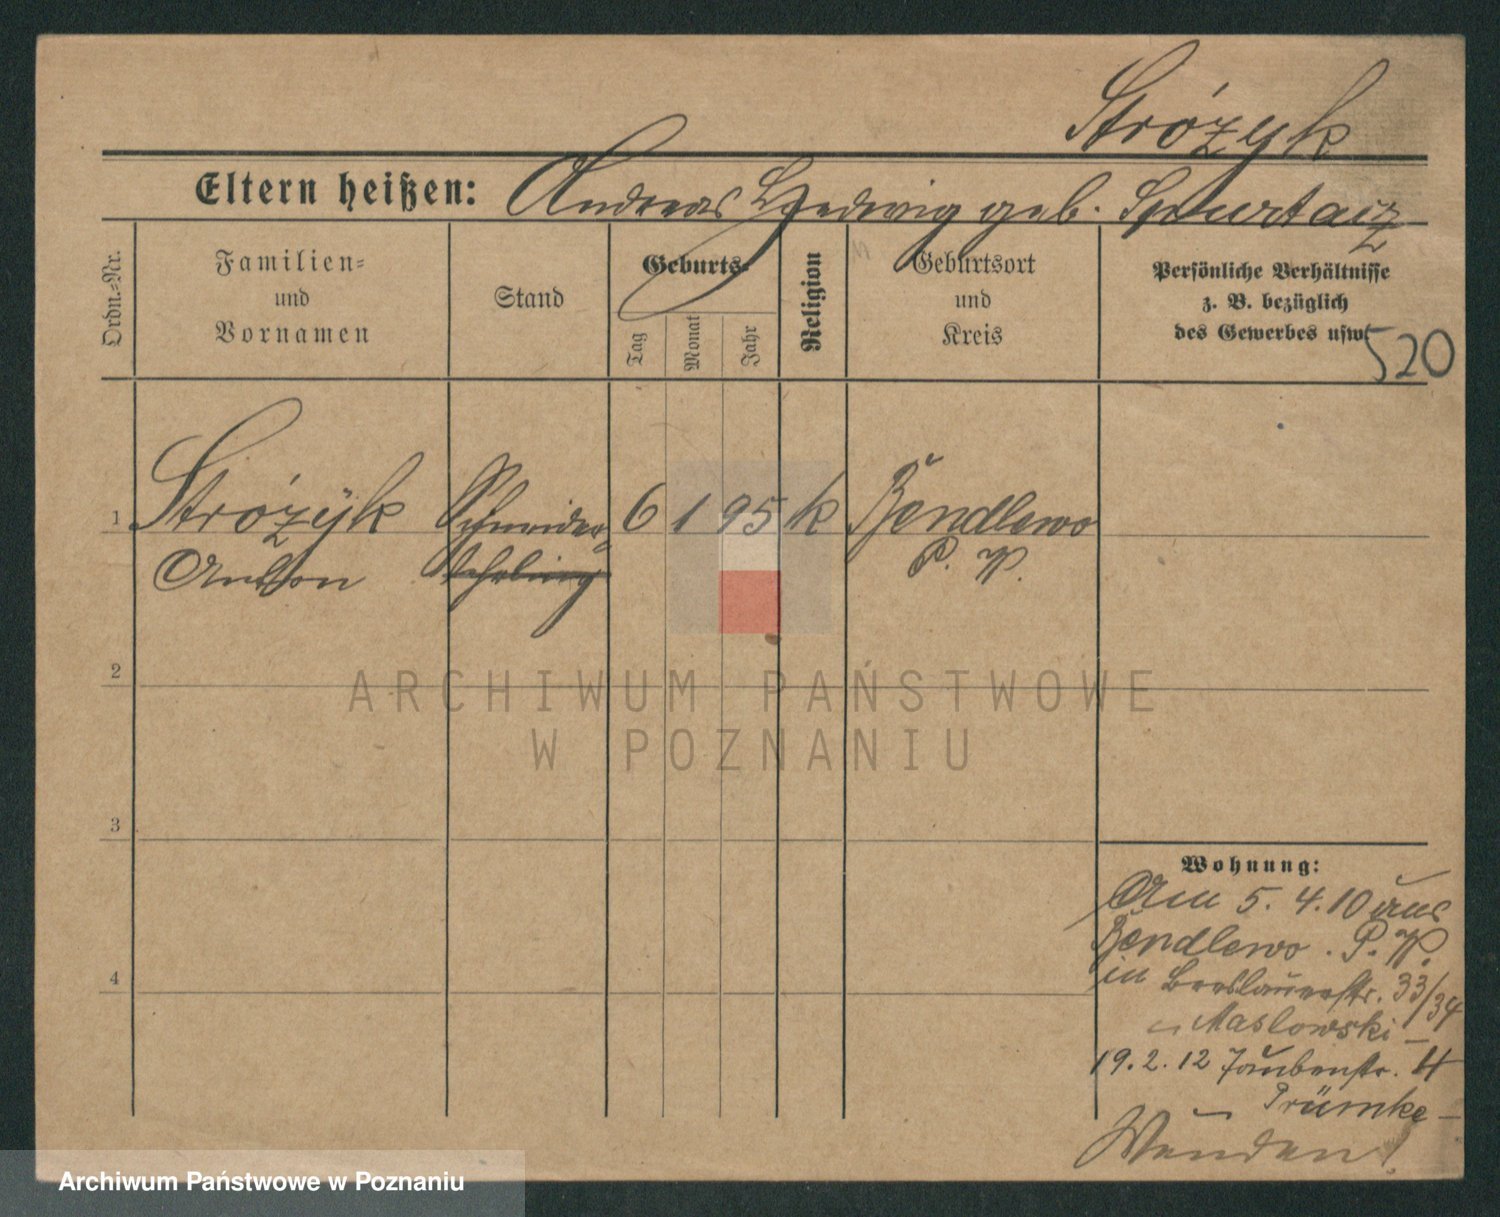 Strózyk
Eltern heißen: Andreas Hedwig geb. Spurtacz
Ordn.-Nr.
Familien-
und
Vornamen
Stand
Geburts-
Tag
Monat
Jahr
Religion
Geburtsort
und
Kreis
Persönliche Verhältnisse
z. B. bezüglich
des Gewerbes usw.
520
1 Strózÿk Schneider 6 1 95 k Bendlewo
Anton Lehrling P. W.
2
3
4
Wohnung:
Am 5. 4. 10 aus
Bendlewo. P. W.
in Breslauerstr. 33/34
Maslowski
19. 2. 12 Taubenstr. 4
Prümke
Wenden!
ARCHIWUM PAŃSTWOWE
W POZNANIU
Archiwum Państwowe w Poznaniu